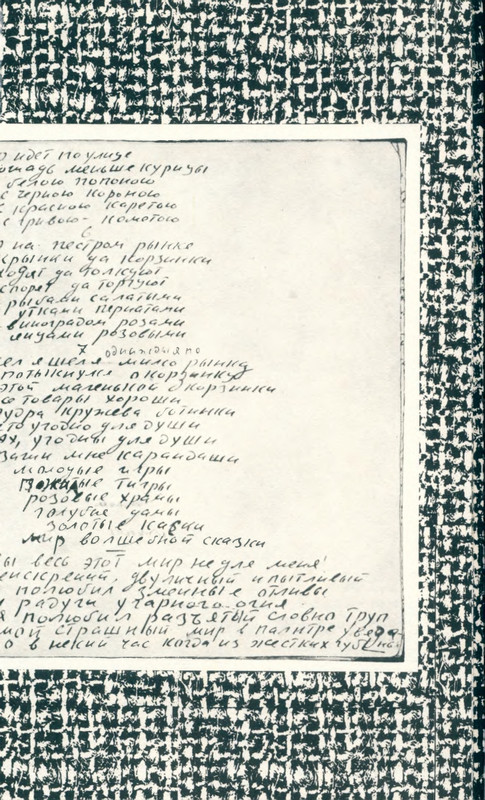 идет по улице
лошадь меньше курицы
белою попоною
с черною короною
с красною каретою
с гривою - кометою
на пестром рынке
крынки да корзинки
ходят да толкуют
спорят да торгуют
рыбами салатыми
утками пернатыми
виноградом розами
яицами розовыми
шел я шел я мимо рынка
однажды я по
потыкнулся о корзинку
этой маленькой о корзинки
все товары хороши
пудра кружева ботинки
что угодно для души
Ах, угодны для души
Зачем мне карандаши
молодые игры
рыжие тигры
розовые храмы
голубые дамы
золотые каски
мир волшебной сказки
весь этот мир не для меня!
неискрений, двуличный и пытливый
полюбил зменные отливы
радуги у чарного огня
я полюбил разъятый словно труп
мой страшный мир в палитре увяда
о в некий час когда из жестких губ